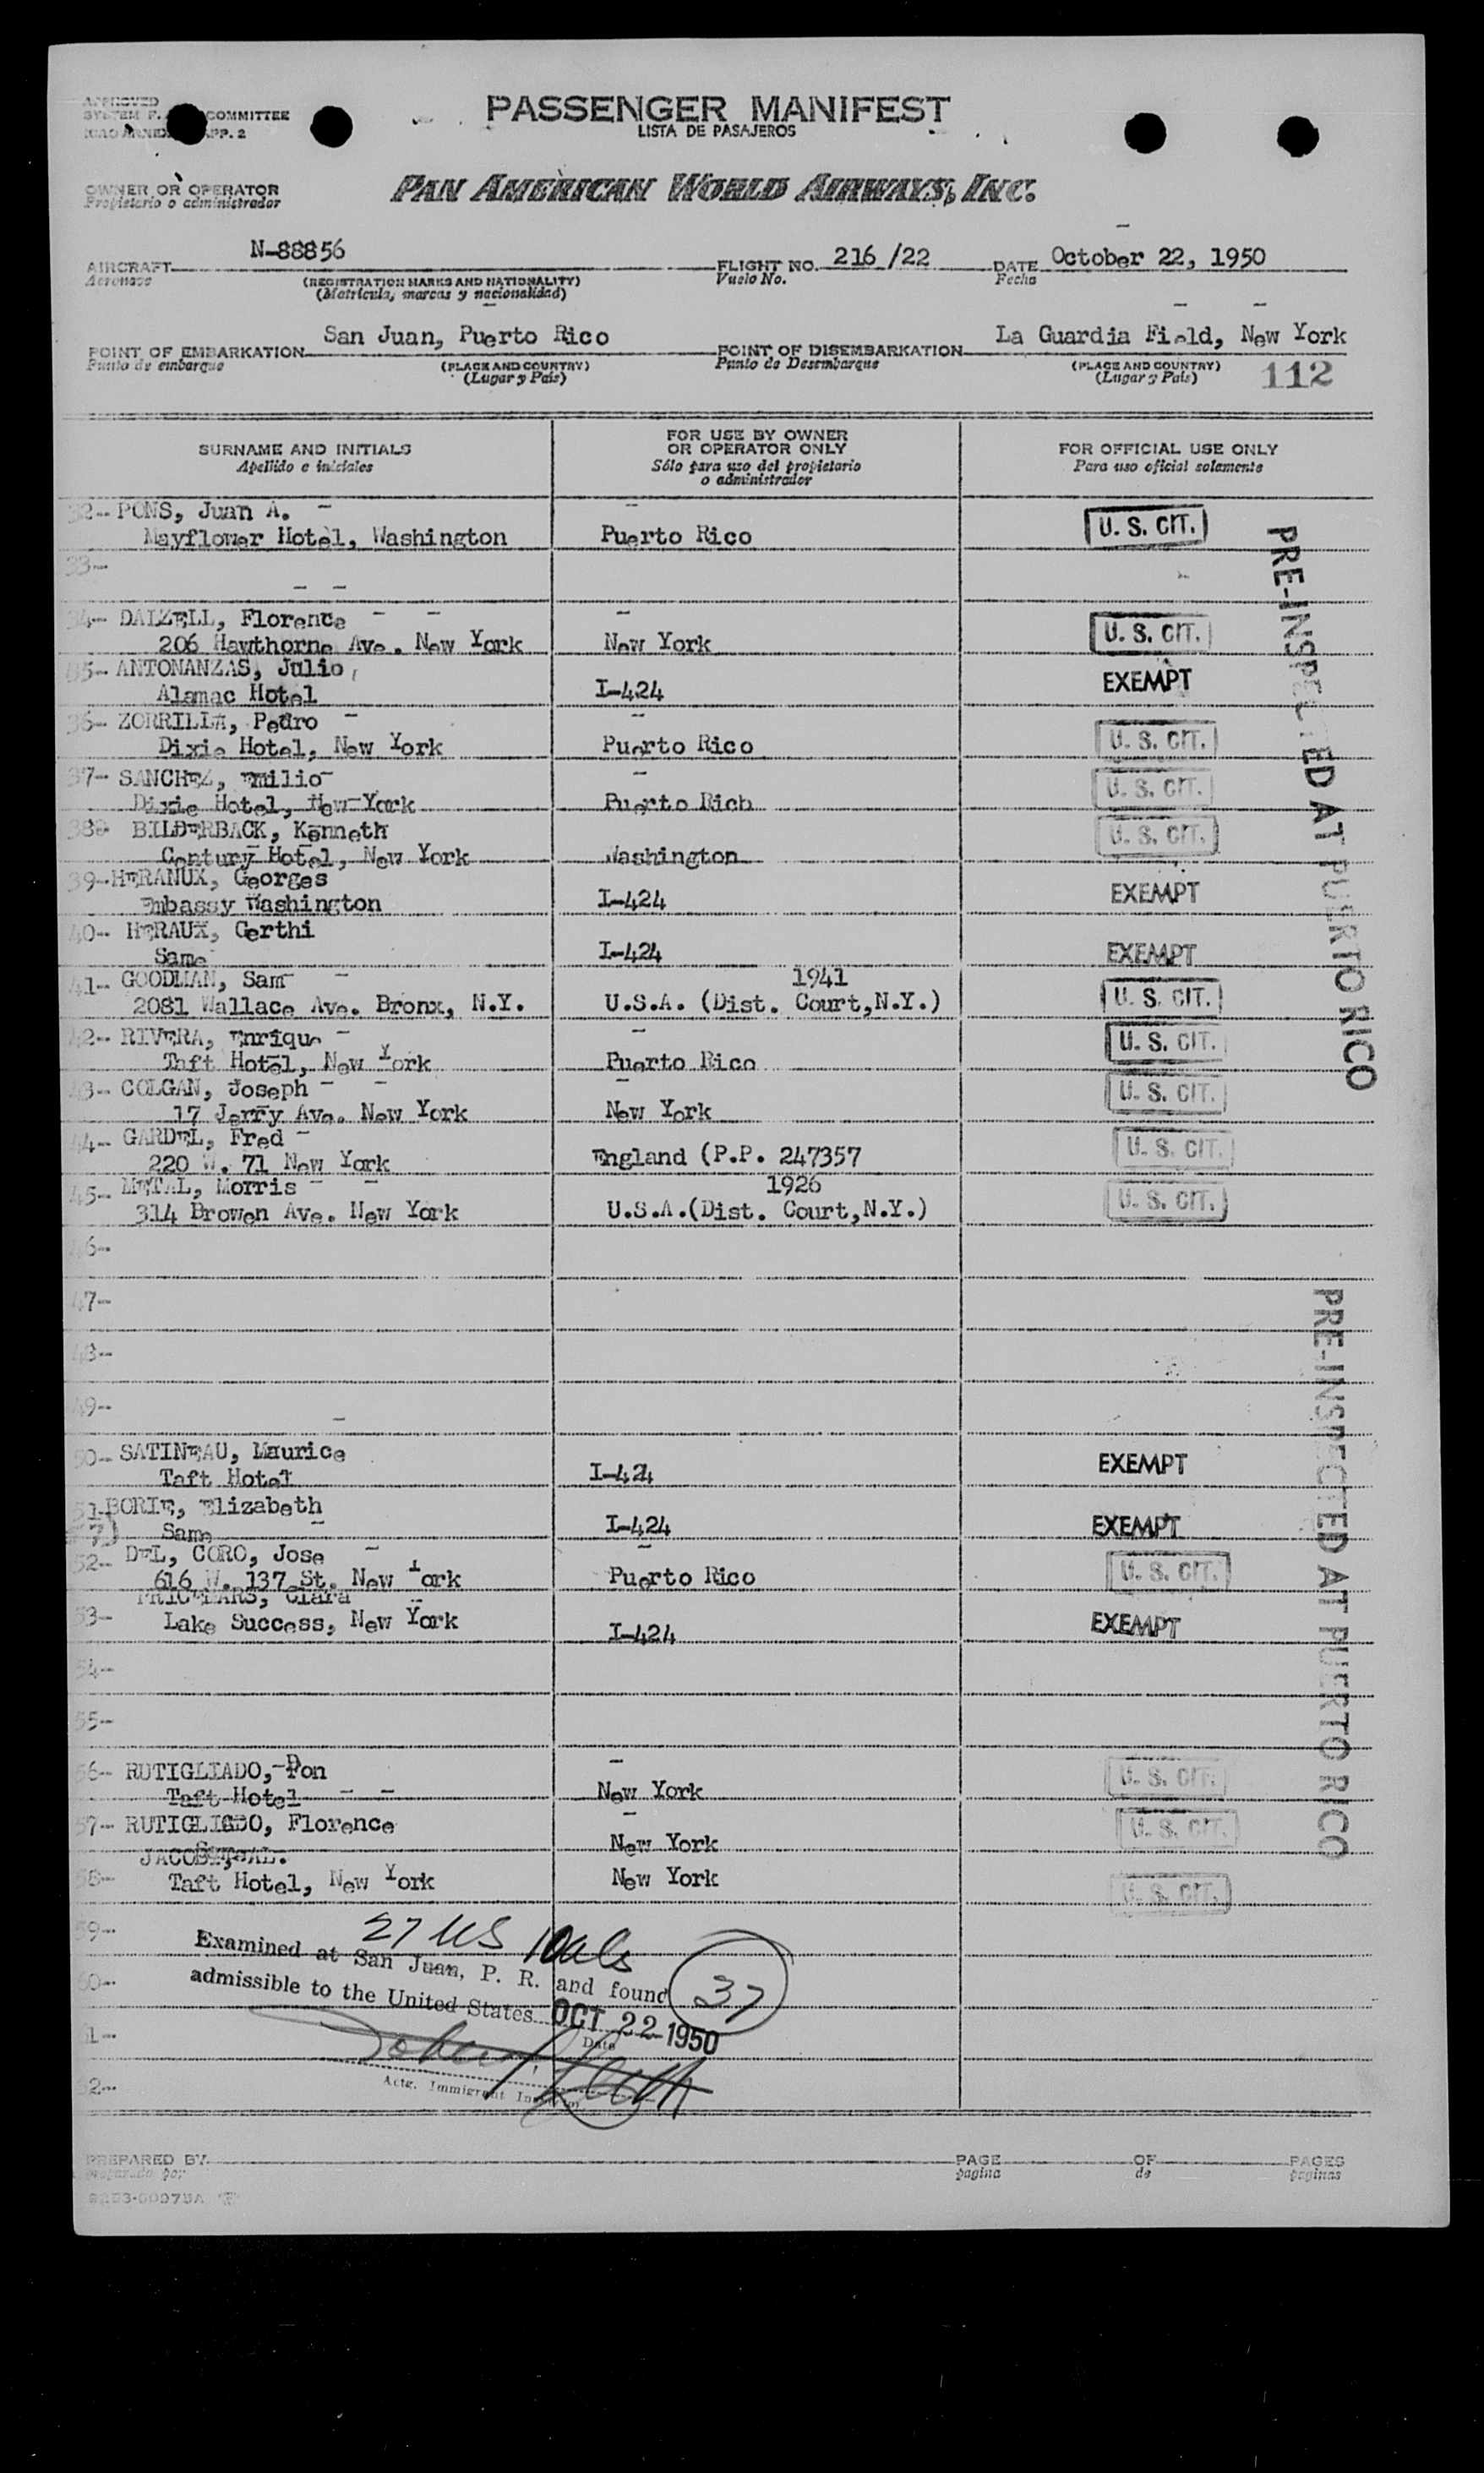 APPROVED
SYSTEM F. COMMITTEE
ICAO ANNEX APP. 2
PASSENGER MANIFEST
LISTA DE PASAJEROS
OWNER OR OPERATOR
Propietario o administrador
PAN AMERICAN WORLD AIRWAYS, INC.
AIRCRAFT N-88856 FLIGHT NO. 216/22 DATE October 22, 1950
Aeronave (REGISTRATION MARKS AND NATIONALITY) Vuelo No. Fecha
(Matrícula, marcas y nacionalidad)
POINT OF EMBARKATION San Juan, Puerto Rico POINT OF DISEMBARKATION La Guardia Field, New York
Punto de embarque (PLACE AND COUNTRY) Punto de Desembarque (PLACE AND COUNTRY)
(Lugar y País) (Lugar y País) 112
SURNAME AND INITIALS FOR USE BY OWNER OR OPERATOR ONLY FOR OFFICIAL USE ONLY
Apellido e iniciales Sólo para uso del propietario o administrador Para uso oficial solamente
32-- PONS, Juan A. -
Mayflower Hotel, Washington Puerto Rico U. S. CIT.
33--
34-- DALZELL, Florence - -
206 Hawthorne Ave. New York New York U. S. CIT.
35-- ANTONANZAS, Julio,
Alamac Hotel I-424 EXEMPT
36-- ZORRILLA, Pedro -
Dixie Hotel, New York Puerto Rico U. S. CIT.
37-- SANCHEZ, Emilio-
Dixie Hotel, New York Puerto Rich U. S. CIT.
38- BILDERBACK, Kenneth
Century Hotel, New York Washington U. S. CIT.
39--HERANUX, Georges
Embassy Washington I-424 EXEMPT
40-- HERAUX, Gerthi
Same I-424 EXEMPT
41-- GOODMAN, Sam - 1941
2081 Wallace Ave. Bronx, N.Y. U.S.A. (Dist. Court,N.Y.) U. S. CIT.
42-- RIVERA, Enrique -
Taft Hotel, New York Puerto Rico U. S. CIT.
43-- COLGAN, Joseph - -
17 Jerry Ave. New York New York U. S. CIT.
44-- GARDEL, Fred -
220 W. 71 New York England (P.P. 247357 U. S. CIT.
45-- METAL, Morris - - 1926
314 Browen Ave. New York U.S.A.(Dist. Court,N.Y.) U. S. CIT.
46--
47--
48--
49--
50-- SATINEAU, Maurice
Taft Hotel I-424 EXEMPT
51-BORIE, Elizabeth
Same I-424 EXEMPT
52-- DEL, CORO, Jose -
616 W. 137 St. New York Puerto Rico U. S. CIT.
Clara
53-- Lake Success, New York I-424 EXEMPT
54--
55--
56-- RUTIGLIADO, Don
Taft Hotel - - New York U. S. CIT.
57-- RUTIGLIADO, Florence
New York U. S. CIT.
58-- Taft Hotel, New York New York U. S. CIT.
PRE-INSPECTED AT PUERTO RICO
PRE-INSPECTED AT PUERTO RICO
59--
27 US 10 als
Examined at San Juan, P. R. and found
60--
admissible to the United States OCT 22 1950
37
61-- Date
Actg. Immigrant Inspector
62--
PREPARED BY PAGE OF PAGES
Preparado por página de páginas